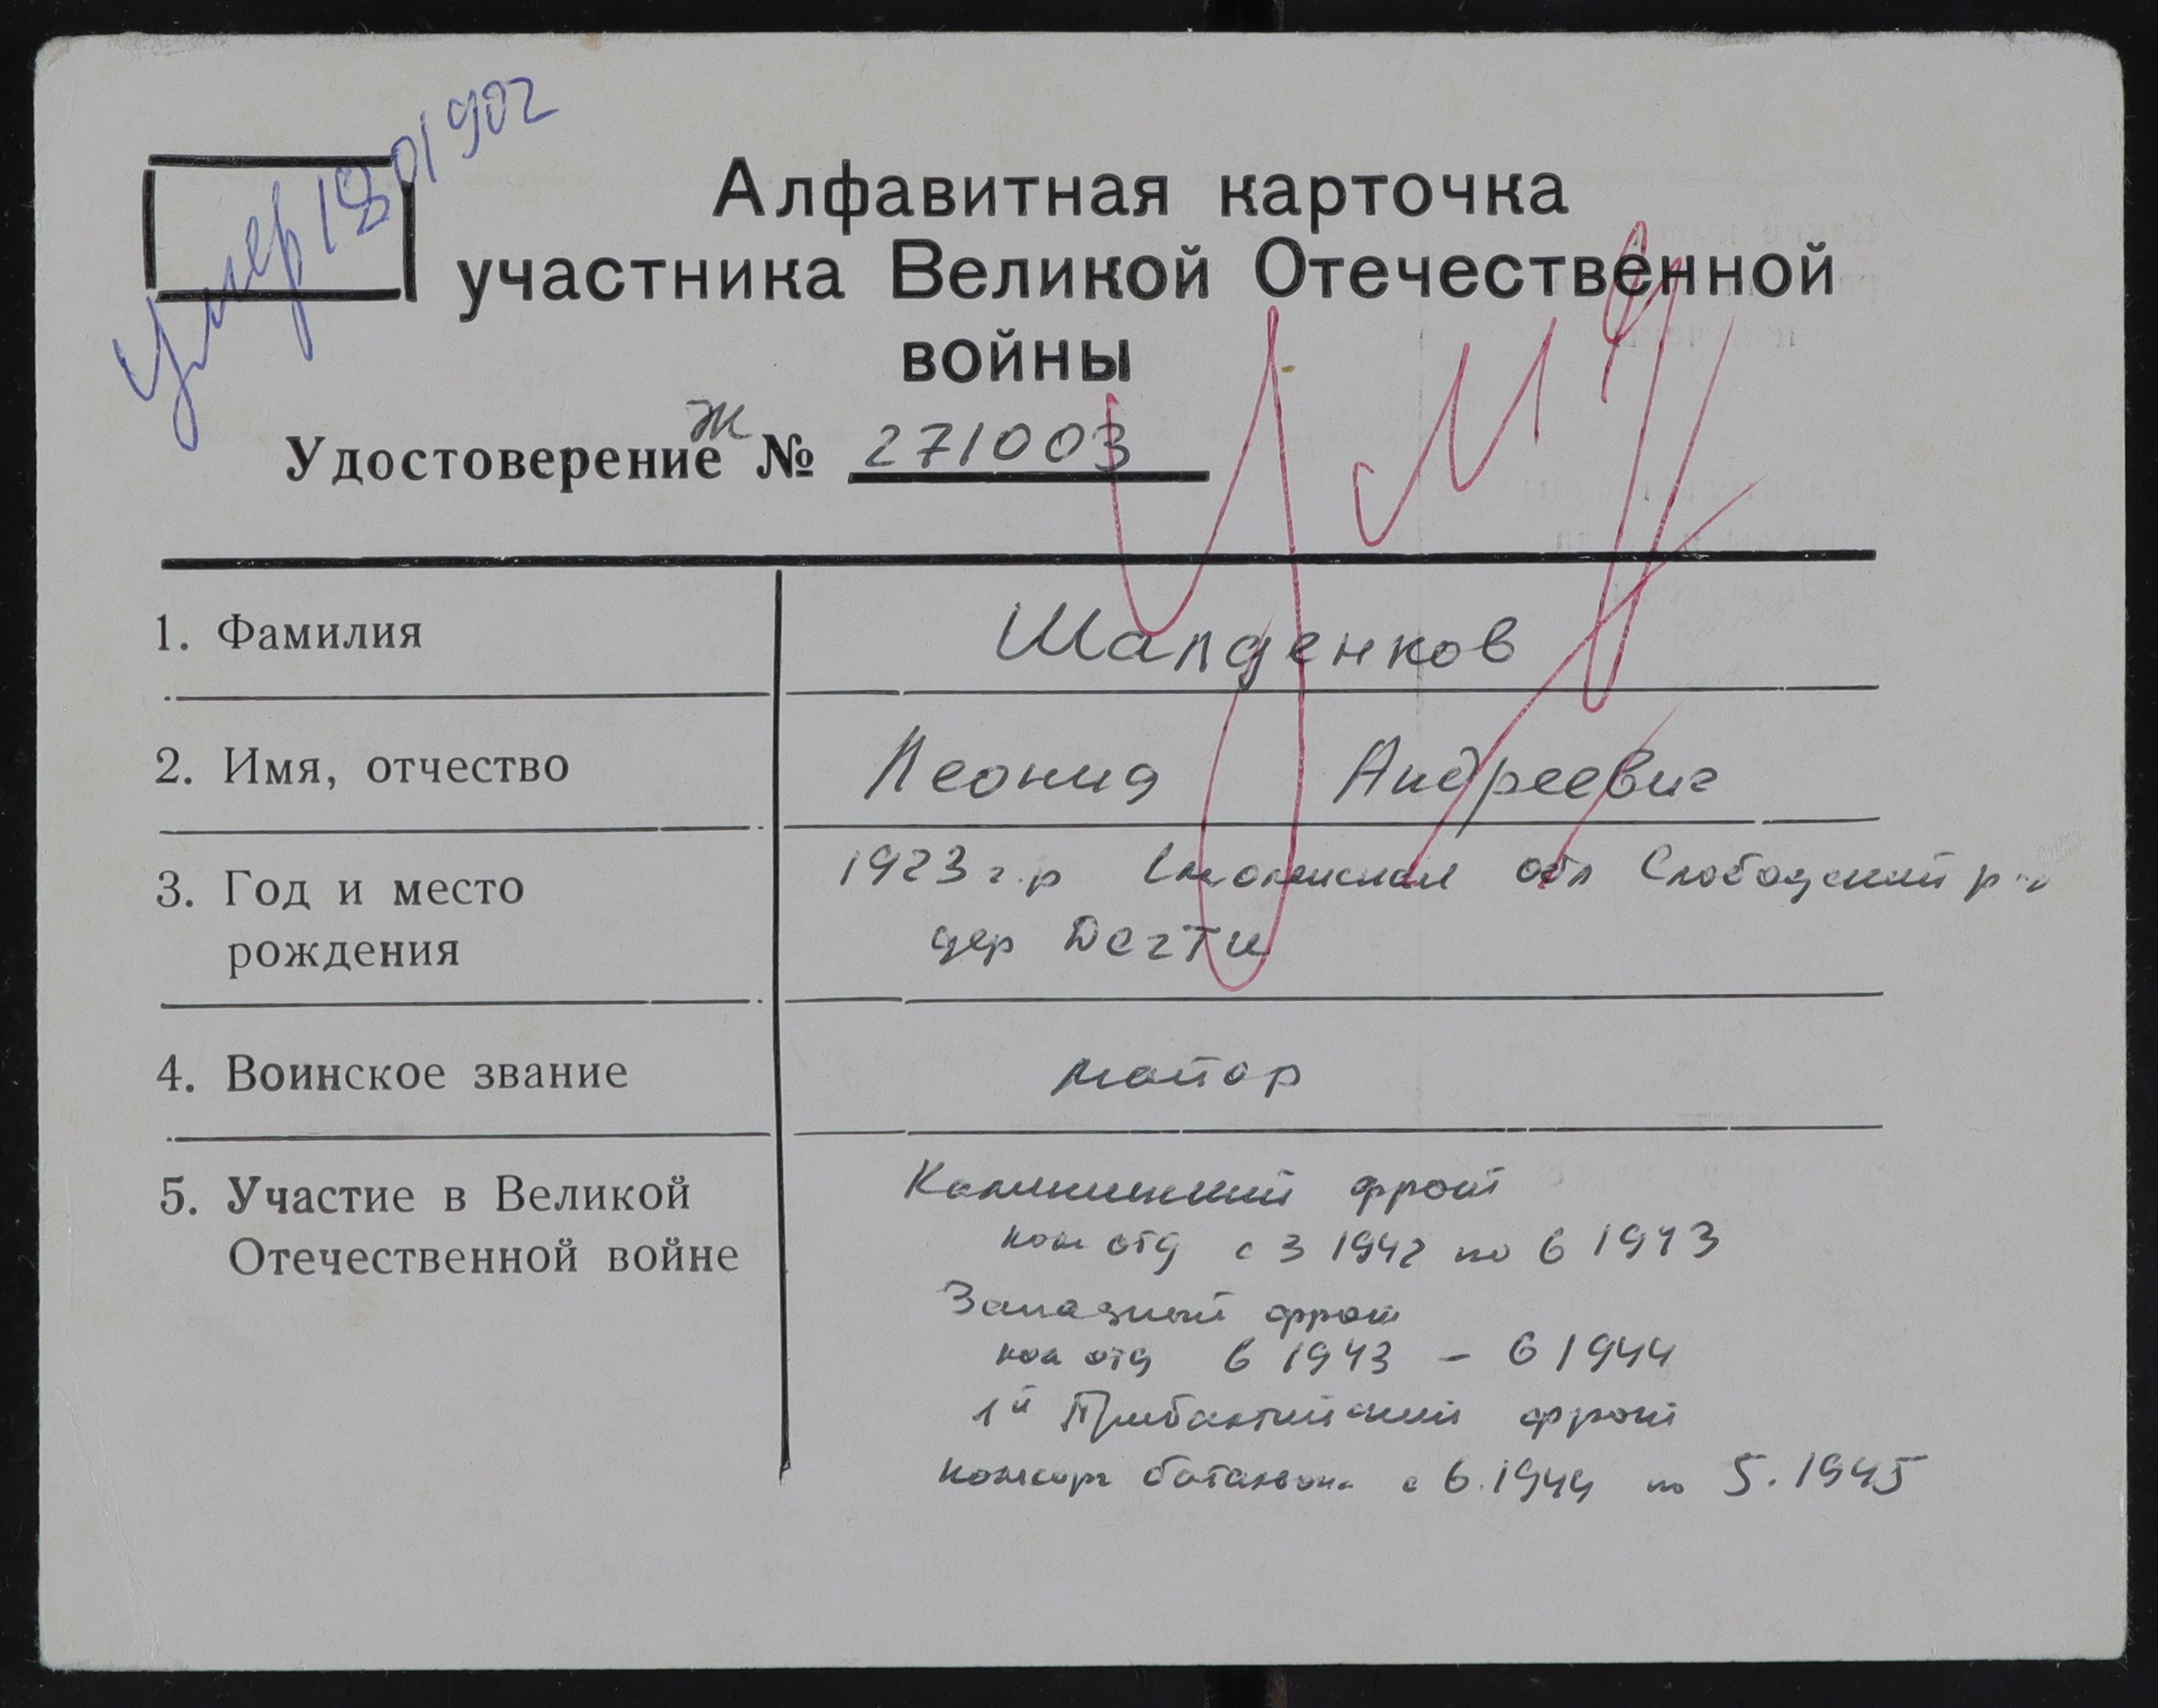 Умер 18 01 902
Алфавитная карточка
участника Великой Отечественной
войны
Удостоверение Ж № 271003
Умер
1. Фамилия Шалденков
2. Имя, отчество Леонид Андреевич
3. Год и место 1923 г.р Смоленская обл Слободский р-н
рождения дер Дегти
4. Воинское звание майор
5. Участие в Великой Калининский фронт
Отечественной войне ком отд с 3 1942 по 6 1943
Западный фронт
ком отд 6 1943 – 6 1944
1й Прибалтийский фронт
комсорг батальона с 6.1944 по 5.1945